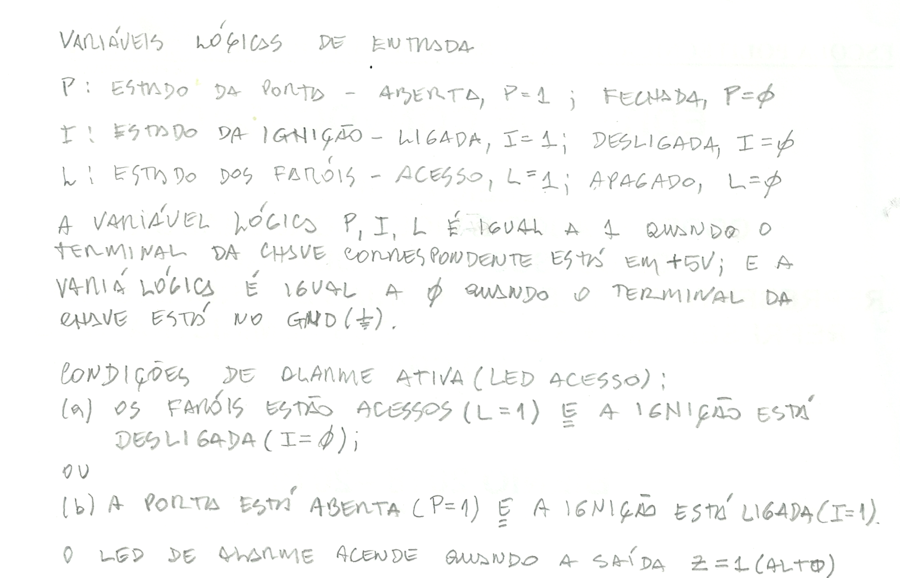 VARIÁVEIS LÓGICAS DE ENTRADA
P: ESTADO DA PORTA - ABERTA, P=1; FECHADA, P=∅
I: ESTADO DA IGNIÇÃO - LIGADA, I=1; DESLIGADA, I=∅
L: ESTADO DOS FARÓIS - ACESSO, L=1; APAGADO, L=∅
A VARIÁVEL LÓGICA P, I, L É IGUAL A 1 QUANDO O
TERMINAL DA CHAVE CORRESPONDENTE ESTÁ EM +5V; E A
VARIÁ LÓGICA É IGUAL A ∅ QUANDO O TERMINAL DA
CHAVE ESTÁ NO GND(⏚).
CONDIÇÕES DE ALARME ATIVA (LED ACESSO):
(a) OS FARÓIS ESTÃO ACESSOS (L=1) E A IGNIÇÃO ESTÁ
DESLIGADA (I=∅);
OU
(b) A PORTA ESTÁ ABERTA (P=1) E A IGNIÇÃO ESTÁ LIGADA (I=1).
O LED DE ALARME ACENDE QUANDO A SAÍDA Z=1 (ALTO)